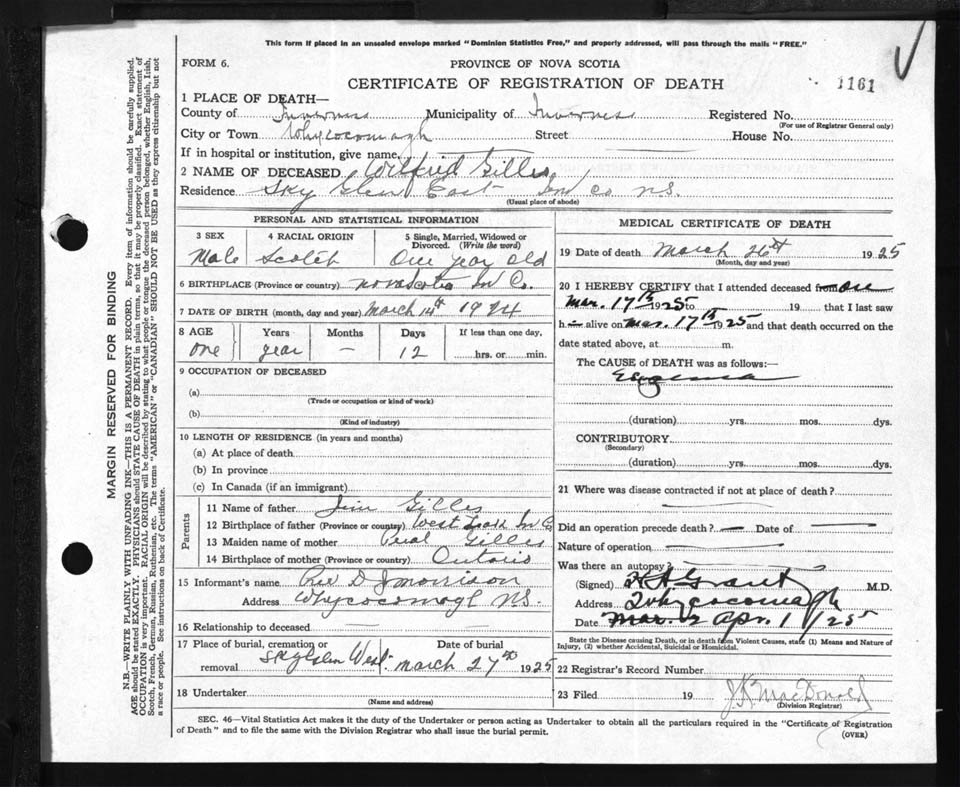 This form if placed in an unsealed envelope marked "Dominion Statistics Free," and properly addressed, will pass through the mails "FREE."
FORM 6.
PROVINCE OF NOVA SCOTIA
CERTIFICATE OF REGISTRATION OF DEATH
1161
1 PLACE OF DEATH—
County of Inverness Municipality of Inverness Registered No.
(For use of Registrar General only)
City or Town Whycocomagh Street House No.
If in hospital or institution, give name
2 NAME OF DECEASED Wilfrid Gillis
Residence Sky Glen East Inv Co N.S.
(Usual place of abode)
PERSONAL AND STATISTICAL INFORMATION
3 SEX 4 RACIAL ORIGIN 5 Single, Married, Widowed or Divorced. (Write the word)
Male Scotch One year old
6 BIRTHPLACE (Province or country) Nova Scotia In Co.
7 DATE OF BIRTH (month, day and year) March 14th 1924
8 AGE Years Months Days If less than one day.
one year — 12 hrs. or min.
9 OCCUPATION OF DECEASED
(a)
(Trade or occupation or kind of work)
(b)
(Kind of industry)
10 LENGTH OF RESIDENCE (in years and months)
(a) At place of death
(b) In province
(c) In Canada (if an immigrant)
Parents
11 Name of father Jim Gillis
12 Birthplace of father (Province or country) West In C
13 Maiden name of mother Peral Gillis
14 Birthplace of mother (Province or country) Ontario
15 Informant's name Rev D J Morrison
Address Whycocomagh N.S.
16 Relationship to deceased
17 Place of burial, cremation or removal Date of burial
Skyglen West March 27th 1925
18 Undertaker
(Name and address)
MEDICAL CERTIFICATE OF DEATH
19 Date of death March 26th 1925
(Month, day and year)
20 I HEREBY CERTIFY that I attended deceased from on
Mar. 17th 1925 to 19 that I last saw
h— alive on Mar. 17th 1925 and that death occurred on the
date stated above, at m.
The CAUSE OF DEATH was as follows:
Eczema
(duration) yrs. mos. dys.
CONTRIBUTORY
(Secondary)
(duration) yrs. mos. dys.
21 Where was disease contracted if not at place of death?
Did an operation precede death? — Date of —
Nature of operation
Was there an autopsy?
(Signed) Grant M.D.
Address Whycocomagh
Date Mar. 2 Apr. 1/25
State the Disease causing Death, or in death from Violent Causes, state (1) Means and Nature of
Injury, (2) whether Accidental, Suicidal or Homicidal.
22 Registrar's Record Number
23 Filed 19 MacDonald
(Division Registrar)
SEC. 46—Vital Statistics Act makes it the duty of the Undertaker or person acting as Undertaker to obtain all the particulars required in the "Certificate of Registration
of Death" and to file the same with the Division Registrar who shall issue the burial permit.
(OVER)
MARGIN RESERVED FOR BINDING
N.B.—WRITE PLAINLY WITH UNFADING INK—THIS IS A PERMANENT RECORD. Every item of information should be carefully supplied.
AGE should be stated EXACTLY. PHYSICIANS should STATE CAUSE OF DEATH in plain terms, so that it may be properly classified. Exact statement of
OCCUPATION is very important. RACIAL ORIGIN will be described by stating to what people or tongue the deceased person belonged, whether English, Irish,
Scotch, French, German, Russian, Ruthenian, etc. The terms "AMERICAN" or "CANADIAN" SHOULD NOT BE USED as they express citizenship but not
a race or people. See instructions on back of Certificate.